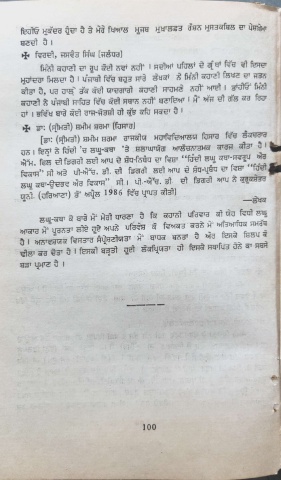 ਇਹੀਓ ਮੁਕੱਦਰ ਹੁੰਦਾ ਹੈ ਤੇ ਮੇਰੇ ਖਿਆਲ ਮੂਜਬ ਮੁਖਾਲਫਤ ਰੌਸ਼ਨ ਮੁਸਤਕਬਿਲ ਦਾ ਪੇਸ਼ਖੇਮਾ
ਬਣਦੀ ਹੈ ।
✠ ਵਿਰਦੀ, ਜਸਵੰਤ ਸਿੰਘ [ਜਲੰਧਰ]
ਮਿੰਨੀ ਕਹਾਣੀ ਦਾ ਰੂਪ ਕੋਈ ਨਵਾਂ ਨਹੀਂ । ਸਦੀਆਂ ਪਹਿਲਾਂ ਦੇ ਗ੍ਰੰਥਾਂ ਵਿੱਚ ਵੀ ਇਸਦਾ
ਮੁਹਾਂਦਰਾ ਮਿਲਦਾ ਹੈ । ਪੰਜਾਬੀ ਵਿੱਚ ਬਹੁਤ ਸਾਰੇ ਲੇਖਕਾਂ ਨੇ ਮਿੰਨੀ ਕਹਾਣੀ ਲਿਖਣ ਦਾ ਜਤਨ
ਕੀਤਾ ਹੈ, ਪਰ ਹਾਲੇ ਤੱਕ ਕੋਈ ਯਾਦਗਾਰੀ ਕਹਾਣੀ ਸਾਹਮਣੇ ਨਹੀਂ ਆਈ । ਤਾਂਹੀਓਂ ਮਿੰਨੀ
ਕਹਾਣੀ ਨੇ ਪੰਜਾਬੀ ਸਾਹਿਤ ਵਿੱਚ ਕੋਈ ਸਥਾਨ ਨਹੀਂ ਬਣਾਇਆ । ਮੈਂ ਅੱਜ ਦੀ ਗੱਲ ਕਰ ਰਿਹਾ
ਹਾਂ । ਭਵਿੱਖ ਬਾਰੇ ਕੋਈ ਰਾਜ-ਜੋਤਸ਼ੀ ਹੀ ਕੁੱਝ ਕਹਿ ਸਕਦਾ ਹੈ ।
✠ ਡਾ: (ਸ੍ਰੀਮਤੀ) ਸ਼ਮੀਮ ਸ਼ਰਮਾ [ਹਿਸਾਰ]
[ਡਾ: (ਸ੍ਰੀਮਤੀ) ਸ਼ਮੀਮ ਸ਼ਰਮਾ ਰਾਜਕੀਯ ਮਹਾਵਿਦਿਆਲਯ ਹਿਸਾਰ ਵਿੱਚ ਲੈਕਚਰਾਰ
ਹਨ। ਇਨ੍ਹਾਂ ਨੇ ਹਿੰਦੀ 'ਚ ਲਘੂ-ਕਥਾ 'ਤੇ ਸ਼ਲਾਘਾਯੋਗ ਆਲੋਚਨਾਤਮਕ ਕਾਰਜ ਕੀਤਾ ਹੈ।
ਐੱਮ. ਫਿਲ ਦੀ ਡਿਗਰੀ ਲਈ ਆਪ ਦੇ ਸ਼ੋਧ-ਪ੍ਰਬੰਧ ਦਾ ਵਿਸ਼ਾ "ਹਿੰਦੀ ਲਘੂ ਕਥਾ-ਸਵਰੂਪ ਔਰ
ਵਿਕਾਸ" ਸੀ ਅਤੇ ਪੀ-ਐੱਚ. ਡੀ. ਦੀ ਡਿਗਰੀ ਲਈ ਆਪ ਦੇ ਸ਼ੋਧ-ਪ੍ਰਬੰਧ ਦਾ ਵਿਸ਼ਾ "ਹਿੰਦੀ
ਲਘੂ ਕਥਾ-ਉਦਭਵ ਔਰ ਵਿਕਾਸ" ਸੀ । ਪੀ-ਐੱਚ. ਡੀ. ਦੀ ਡਿਗਰੀ ਆਪ ਨੇ ਕੁਰੂਕਸ਼ੇਤਰ
ਯੂਨੀ. (ਹਰਿਆਣਾ) ਤੋਂ ਅਪ੍ਰੈਲ 1986 ਵਿੱਚ ਪ੍ਰਾਪਤ ਕੀਤੀ]
—ਲੇਖਕ
ਲਘੂ-ਕਥਾ ਕੇ ਬਾਰੇ ਮੇਂ ਮੇਰੀ ਧਾਰਣਾ ਹੈ ਕਿ ਕਹਾਨੀ ਪਰਿਵਾਰ ਕੀ ਯੇਹ ਵਿਧੀ ਲਘੂ
ਆਕਾਰ ਮੇਂ ਪੂਰਨਤਾ ਲੀਏ ਹੂਏ ਅਪਨੇ ਪਰਿਵੇਸ਼ ਕੋ ਵਿਅਕਤ ਕਰਨੇ ਮੇਂ ਅਤਿਆਧਿਕ ਸਮਰਥ
ਹੈ। ਅਨਾਵਸ਼ਯਕ ਵਿਸਤਾਰ ਮੇਂ ਬਾਧਕ ਬਨਤਾ ਹੈ ਔਰ ਇਸਕੇ ਸ਼ਿਲਪ ਕੋ
ਢੀਲਾ ਕਰ ਦੇਤਾ ਹੈ । ਇਸਕੀ ਬੜ੍ਹਤੀ ਹੂਈ ਲੋਕਪ੍ਰਿਯਤਾ ਹੀ ਇਸਕੇ ਸਥਾਪਿਤ ਹੋਨੇ ਕਾ ਸਬਸੇ
ਬੜਾ ਪ੍ਰਮਾਣ ਹੈ ।
100